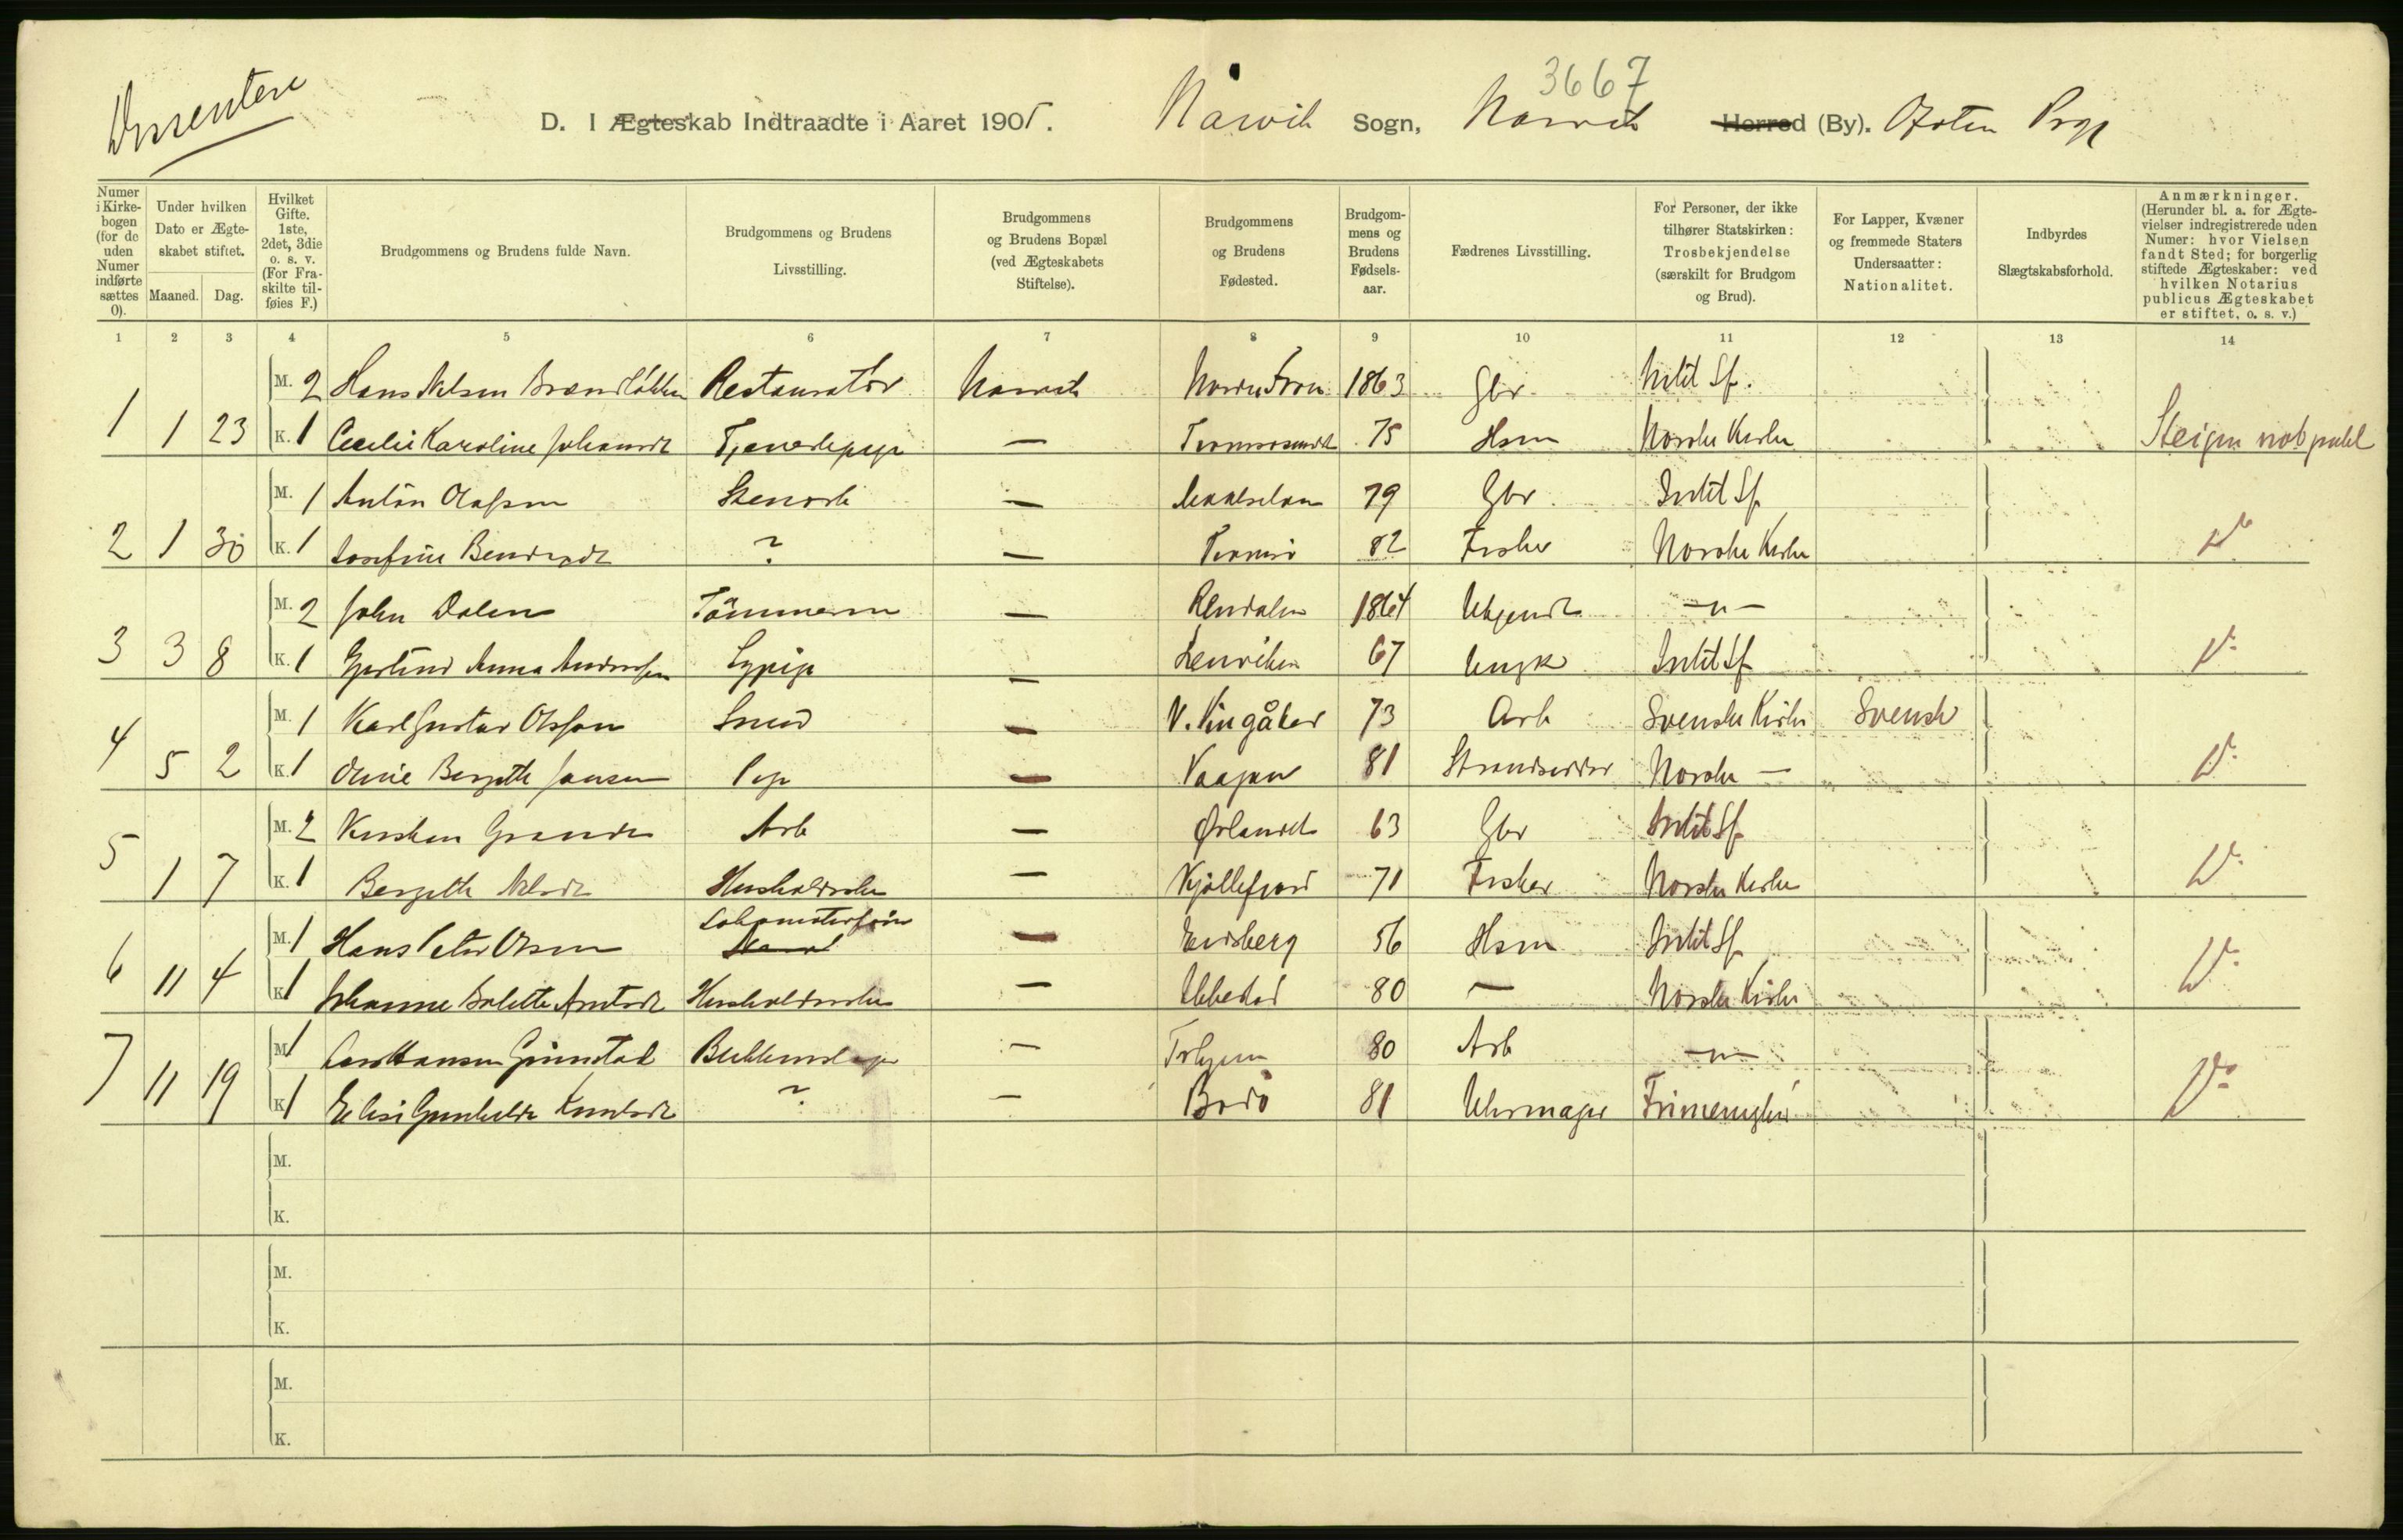 3667
Dissentere
D. I Ægteskab Indtraadte i Aaret 1905. Narvik Sogn, Narvik Herred (By). Ofoten Prgj
Numer i Kirkebogen (for de uden Numer indførte sættes 0).
Under hvilken Dato er Ægteskabet stiftet.
Maaned. Dag.
Hvilket Gifte. 1ste, 2det, 3die o. s. v. (For Fraskilte tilføies F.)
Brudgommens og Brudens fulde Navn.
Brudgommens og Brudens Livsstilling.
Brudgommens og Brudens Bopæl (ved Ægteskabets Stiftelse).
Brudgommens og Brudens Fødested.
Brudgommens og Brudens Fødselsaar.
Fædrenes Livsstilling.
For Personer, der ikke tilhører Statskirken: Trosbekjendelse (særskilt for Brudgom og Brud).
For Lapper, Kvæner og fremmede Staters Undersaatter: Nationalitet.
Indbyrdes Slægtskabsforhold.
Anmærkninger. (Herunder bl. a. for Ægtevielser indregistrerede uden Numer: hvor Vielsen fandt Sted; for borgerlig stiftede Ægteskaber: ved hvilken Notarius publicus Ægteskabet er stiftet, o. s. v.)
1 2 3 4 5 6 7 8 9 10 11 12 13 14
M. 2 Hans Nelsen Restauratør Narvik Nordre Fron 1863 Gbr. Utlit Sf.
1 1 23 K. 1 Cecilie Karoline Johansdt Tjenestepige — Tromsosundet 75 Hsm Norske Kirke Steigen not publ
M. 1 Anton Olafsen Stenarb — Maalselven 79 Gbr. Intet Sf
2 1 30 K. 1 Josefine ? — Tromsø 82 Fisker Norske Kirke Do
M. 2 John Dalen Tømmerm — Rendalen 1864 Ukjendt —"—
3 3 8 K. 1 Gjertrud Anna Andersen Sypige — Lenviken 67 Ungk Intet Sf Do
M. 1 Karl Gustav Olsson Smed — V. Vingåker 73 Arb Svenske Kirke Svensk
4 5 2 K. 1 Olivie Bergethe Jansen Pige — Vaagan 81 Strandsidder Norske — Do
M. 2 Kristian Grande Arb — Ørlandet 63 Gbr Intet Sf
5 1 7 K. 1 Bergethe Nelsdt Husholderske — Kjøllefjord 71 Fisker Norske Kirke Do
M. 1 Hans Peter Olsen Lokomotivfører — Eidsberg 56 Hsm Intet Sf
6 11 4 K. 1 Johanne Bolette Arntsdt Husholderske — Ibbestad 80 — Norske Kirke Do
M. 1 Lars Hansen Grimstad Blikkenslager — Trhjem 80 Arb —"—
7 11 19 K. 1 Elise Gunhilde Knudsdt ? — Bodø 81 Uhrmager Frimenighe Do
M.
K.
M.
K.
M.
K.